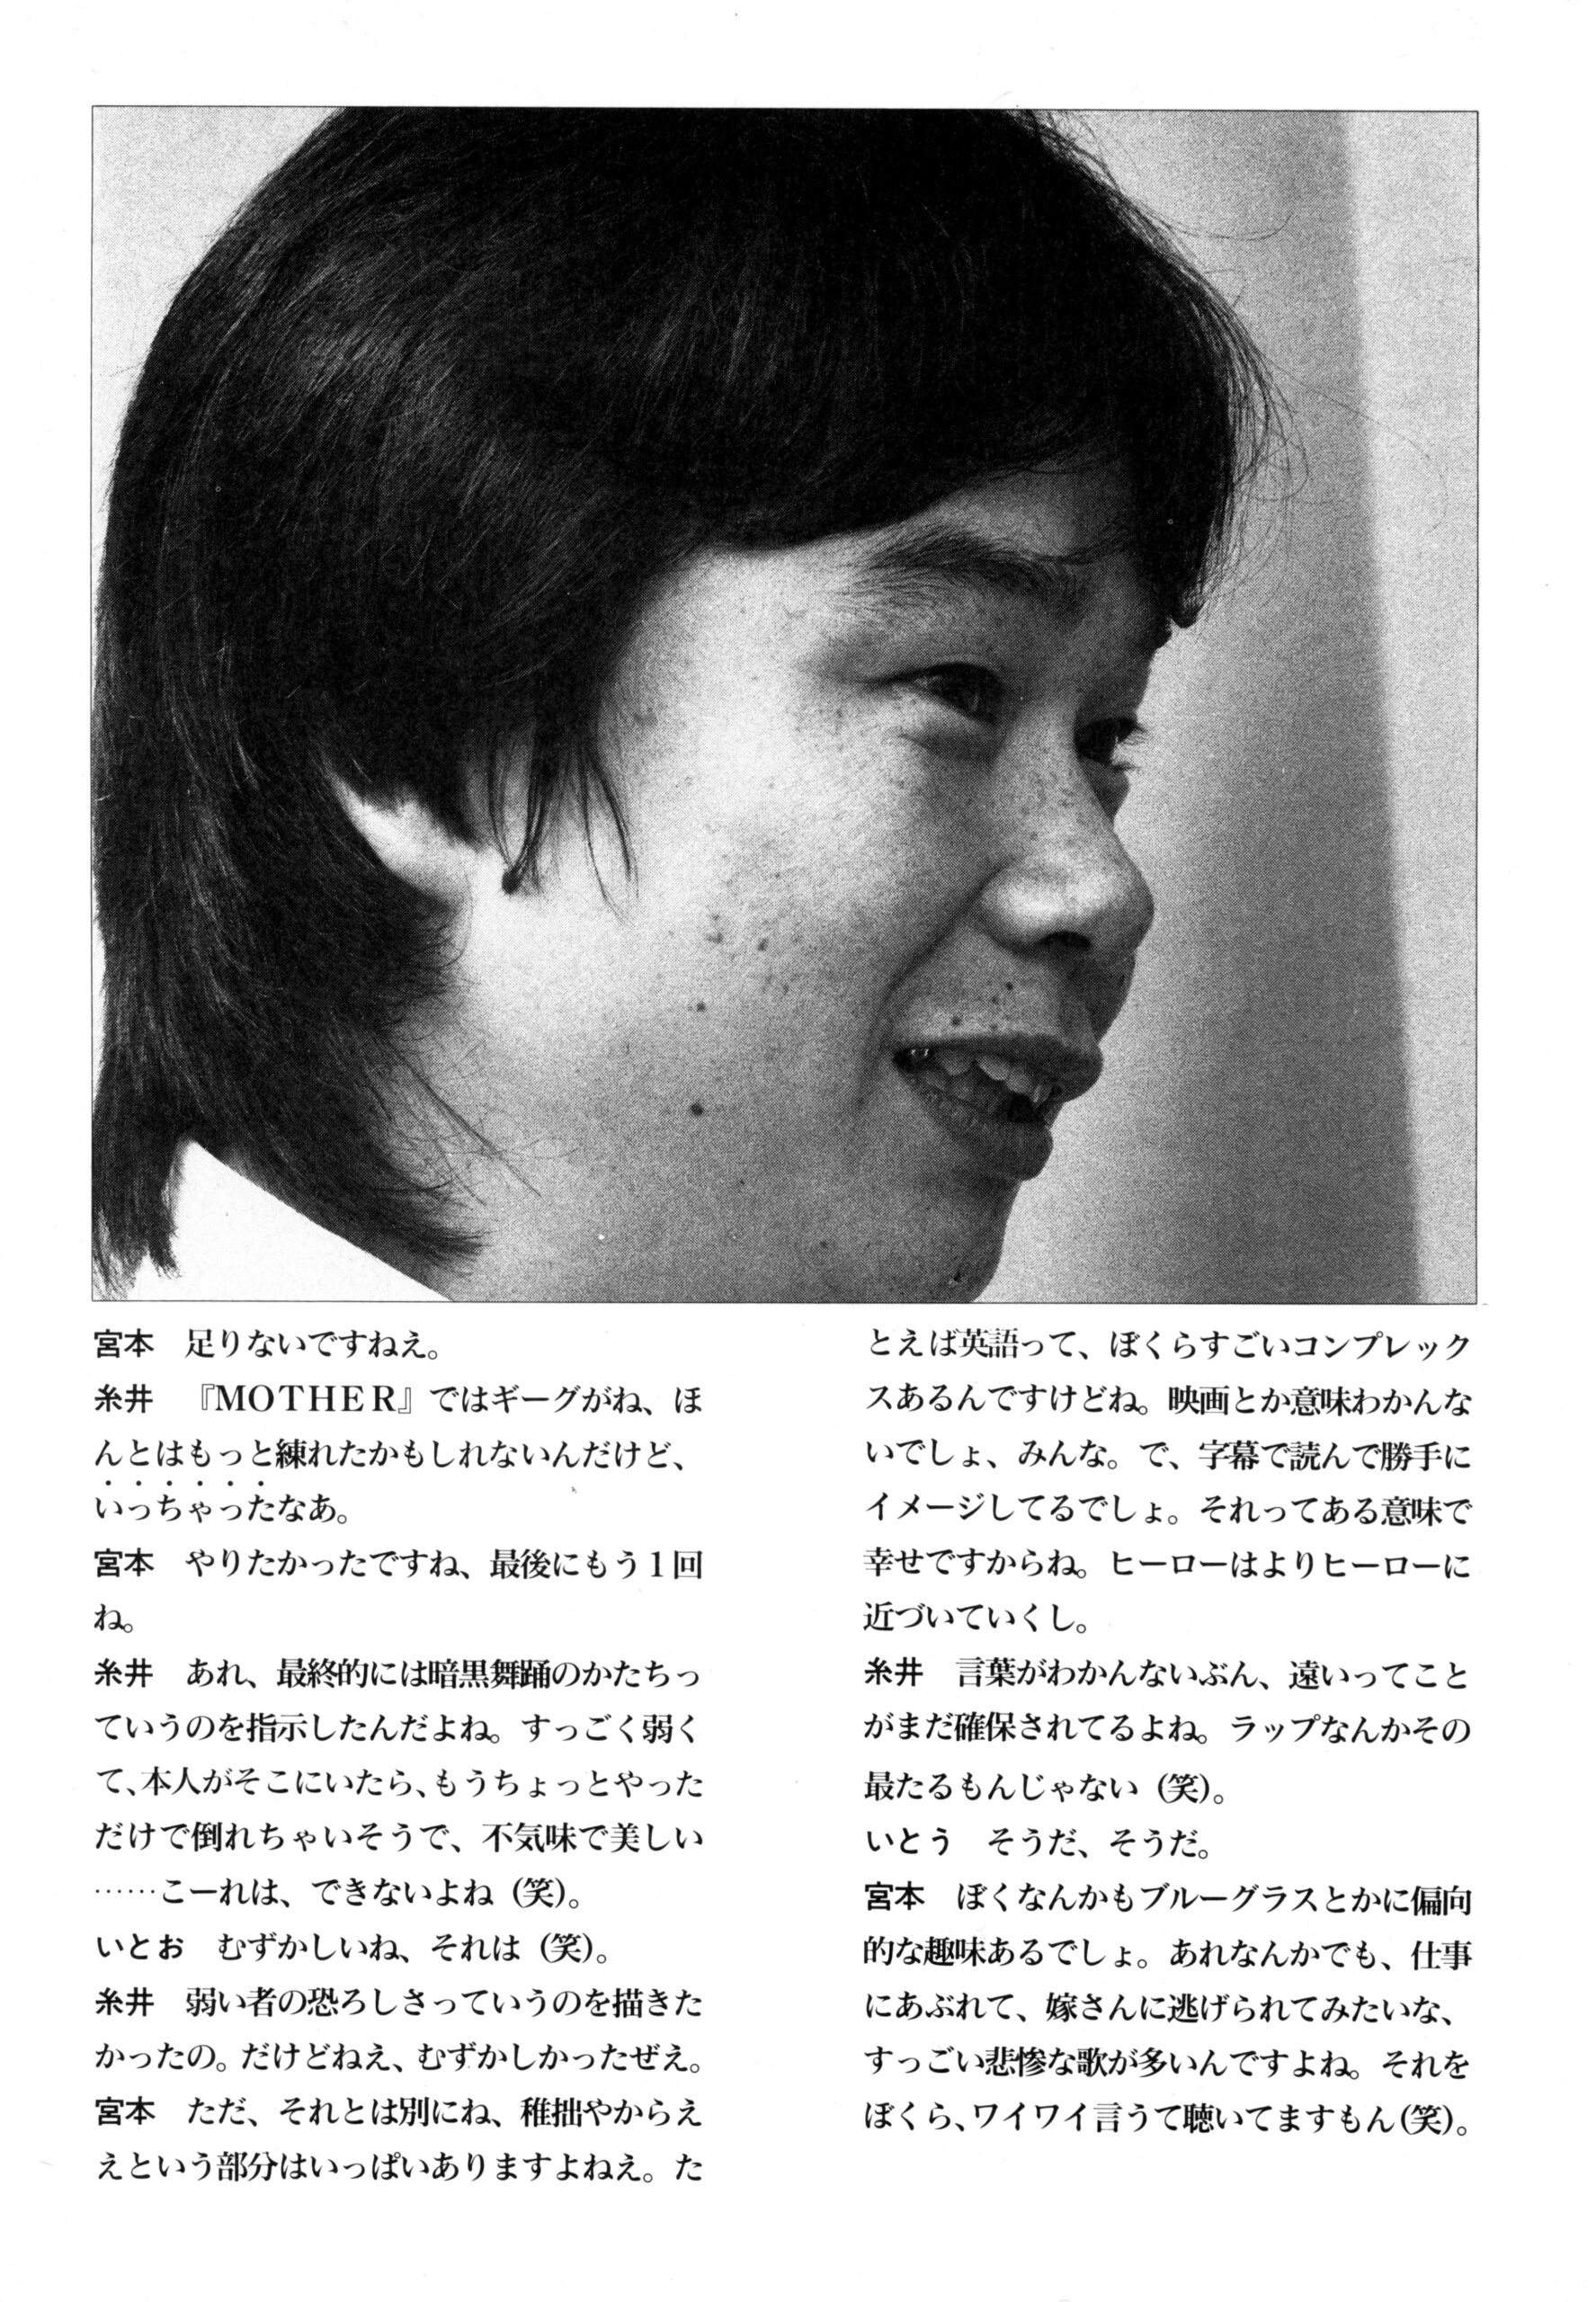 宮本　足りないですねえ。
糸井　『MOTHER』ではギーグがね、ほ
んとはもっと練れたかもしれないんだけど、
いっちゃったなあ。
宮本　やりたかったですね、最後にもう1回
ね。
糸井　あれ、最終的には暗黒舞踊のかたちっ
ていうのを指示したんだよね。すっごく弱く
て、本人がそこにいたら、もうちょっとやった
だけで倒れちゃいそうで、不気味で美しい
……こーれは、できないよね（笑）。
いとお　むずかしいね、それは（笑）。
糸井　弱い者の恐ろしさっていうのを描きた
かったの。だけどねえ、むずかしかったぜえ。
宮本　ただ、それとは別にね、稚拙やからえ
えという部分はいっぱいありますよねえ。た
とえば英語って、ぼくらすごいコンプレック
スあるんですけどね。映画とか意味わかんな
いでしょ、みんな。で、字幕で読んで勝手に
イメージしてるでしょ。それってある意味で
幸せですからね。ヒーローはよりヒーローに
近づいていくし。
糸井　言葉がわかんないぶん、遠いってこと
がまだ確保されてるよね。ラップなんかその
最たるもんじゃない（笑）。
いとう　そうだ、そうだ。
宮本　ぼくなんかもブルーグラスとかに偏向
的な趣味あるでしょ。あれなんかでも、仕事
にあぶれて、嫁さんに逃げられてみたいな、
すっごい悲惨な歌が多いんですよね。それを
ぼくら、ワイワイ言うて聴いてますもん（笑）。